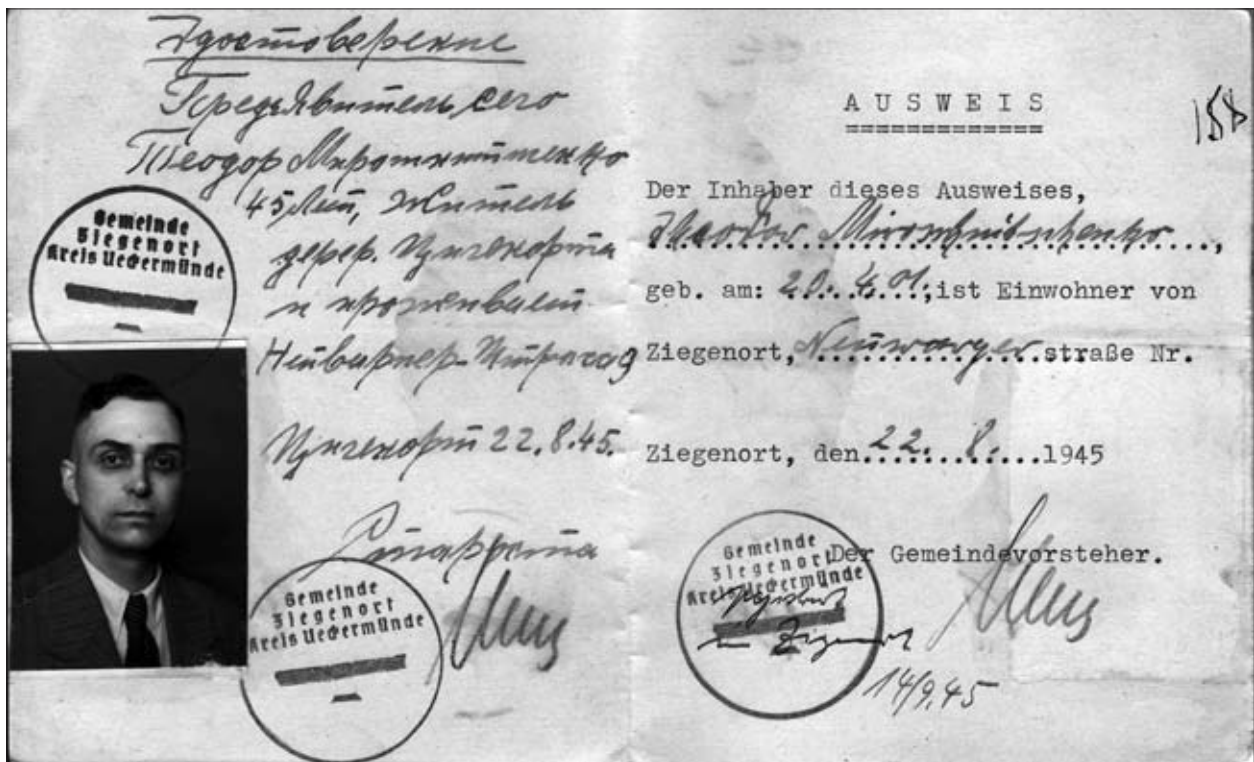 Удостоверение
Предъявитель сего
Теодор Мирошнитшенко
45 лет, житель
дерев. Цигенорта
и проживает
Нейварпер-Штрассэ
Цигенорт 22.8.45.
Gemeinde
Ziegenort
Kreis Ueckermünde
Gemeinde
Ziegenort
Kreis Ueckermünde
AUSWEIS
158
Der Inhaber dieses Ausweises,
Theodor Miroschnitschenko,
geb. am: 20.4.01, ist Einwohner von
Ziegenort, Neuwarper straße Nr.
Ziegenort, den 22. 8. 1945
Der Gemeindevorsteher.
Gemeinde
Ziegenort
Kreis Ueckermünde
14/9.45